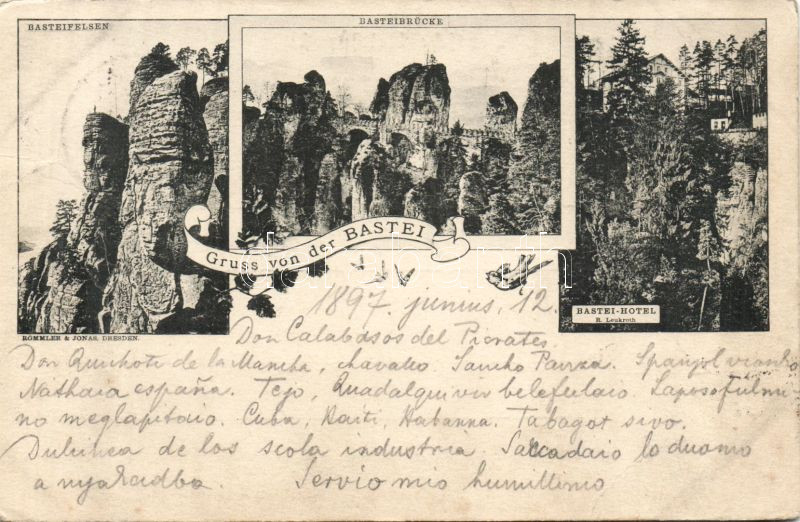 BASTEIFELSEN
BASTEIBRÜCKE
Gruss von der BASTEI
BASTEI-HOTEL
R. Leukroth
RÖMMLER & JONAS, DRESDEN.
1897. junius, 12.
Don Calabasos del Picrates
Don Quichote de la Mancha, chavalio. Sancho Panza. Spanjol
Nathaia españa. Tejo, Guadalquivir belefulaio. Laposofulmi-
no meglapitaio. Cuba, Haiti, Habanna. Tabagot sivo.
Dulcinea de los scola industria. Saccadaio lo duomo
a Servio mio humillimo